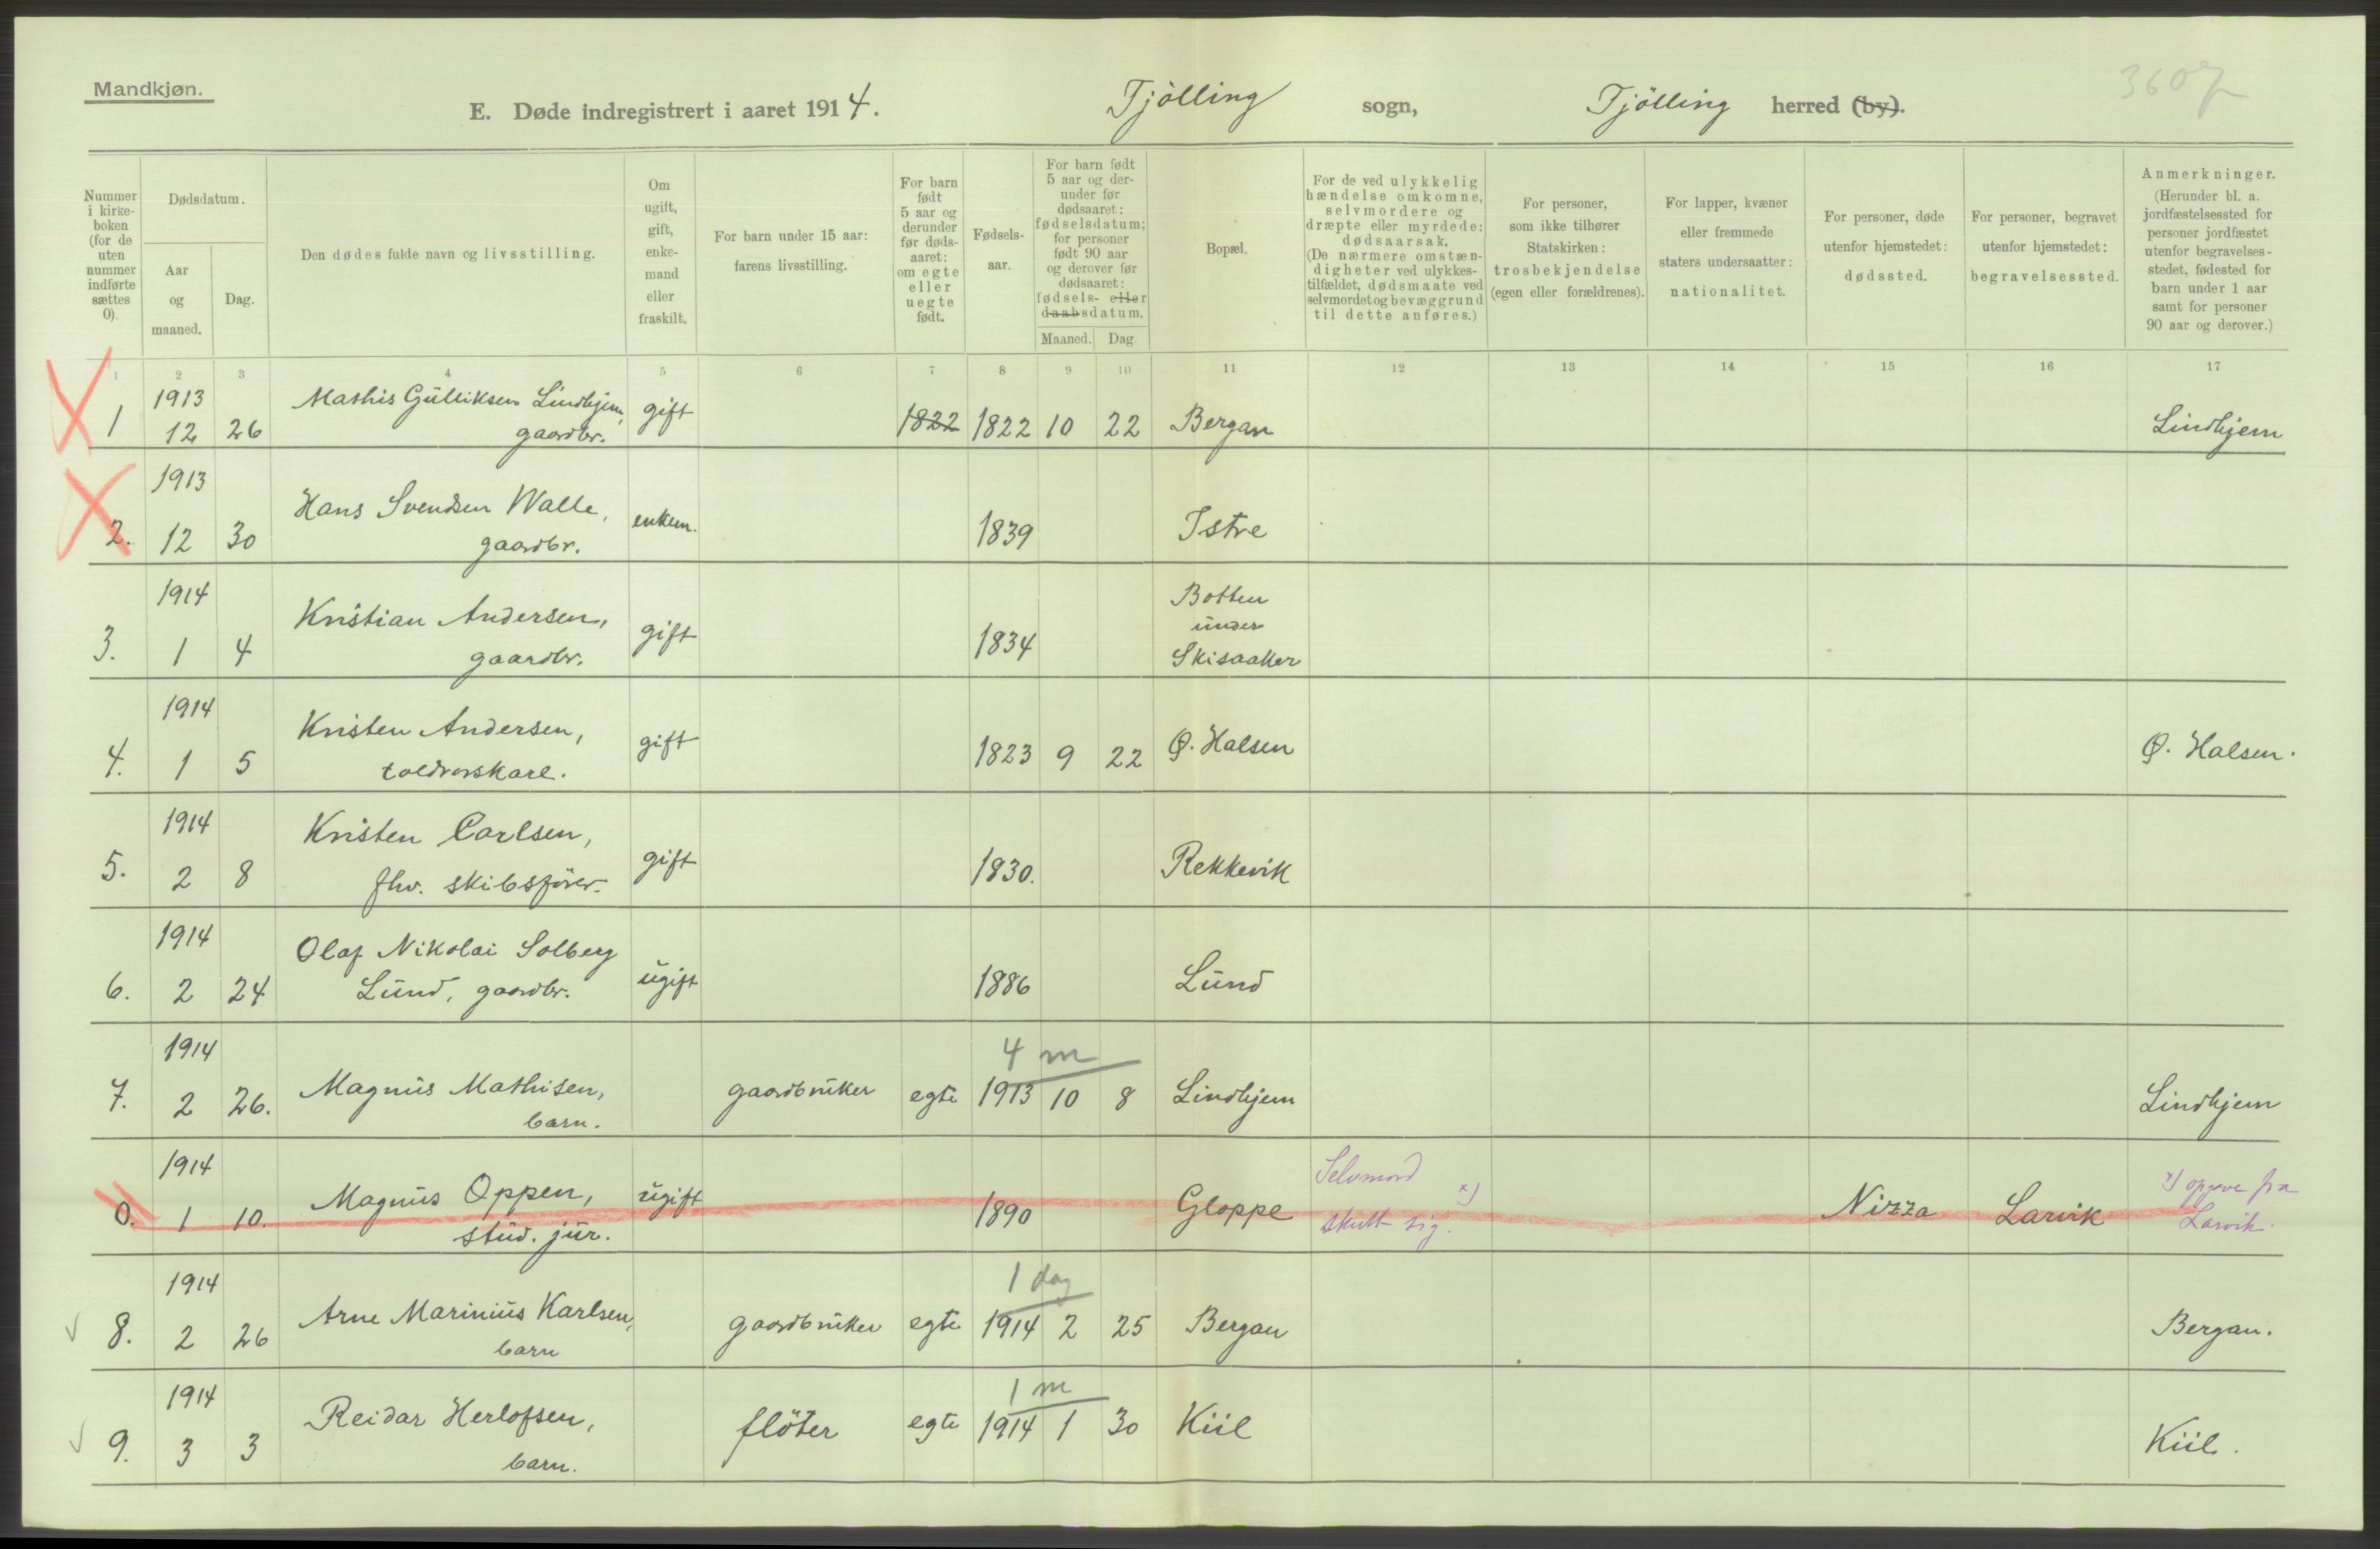 Mandkjøn.
3607
E. Døde indregistrert i aaret 1914. Tjölling sogn, Tjölling herred (by).
Nummer i kirkeboken (for de uten nummer indførte sættes 0).
Dødsdatum.
Aar og maaned.
Dag.
Den dødes fulde navn og livsstilling.
Om ugift, gift, enkemand eller fraskilt.
For barn under 15 aar: farens livsstilling.
For barn født 5 aar og derunder før dødsaaret: om egte eller uegte født.
Fødselsaar.
For barn født 5 aar og derunder før dødsaaret: fødselsdatum; for personer født 90 aar og derover før dødsaaret: fødsels- eller daabsdatum.
Maaned. Dag
Bopæl.
For de ved ulykkelig hændelse omkomne, selvmordere og dræpte eller myrdede: dødsaarsak. (De nærmere omstændigheter ved ulykkestilfældet, dødsmaate ved selvmordet og bevæggrund til dette anføres.)
For personer, som ikke tilhører Statskirken: trosbekjendelse (egen eller forældrenes).
For lapper, kvæner eller fremmede staters undersaatter: nationalitet.
For personer, døde utenfor hjemstedet: dødssted.
For personer, begravet utenfor hjemstedet: begravelsessted.
Anmerkninger. (Herunder bl. a. jordfæstelsessted for personer jordfæstet utenfor begravelsesstedet, fødested for barn under 1 aar samt for personer 90 aar og derover.)
1 2 3 4 5 6 7 8 9 10 11 12 13 14 15 16 17
1 1913 12 26 Mathis Gulliksen Lindhjem, gaardbr. gift 1822 1822 10 22 Bergan Lindhjem
2. 1913 12 30 Hans Svendsen Walle, gaardbr. enkem. 1839 Istre
3. 1914 1 4 Kristian Andersen, gaardbr. gift 1834 Botten under Skisaaker
4. 1914 1 5 Kristen Andersen, toldrorskarl. gift 1823 9 22 Ø. Halsen Ø. Halsen.
5. 1914 2 8 Kristen Carlsen, fhv. skibsförer. gift 1830. Rekkevik
6. 1914 2 24 Olaf Nikolai Solberg Lund, gaardbr. ugift 1886 Lund
7. 1914 2 26. Magnus Mathisen, barn. gaardbruker egte 4 m 1913 10 8 Lindhjem Lindhjem
0. 1914 1 10. Magnus Oppen, stud. jur. ugift 1890 Gloppe Selvmord x) skutt sig. Nizza Larvik x) opgave fra Larvik.
8. 1914 2 26 Arne Marinius Karlsen, barn gaardbruker egte 1 dag 1914 2 25 Bergan Bergan.
9. 1914 3 3 Reidar Herlofsen, barn. flöter egte 1 m 1914 1 30 Kiil Kiil.